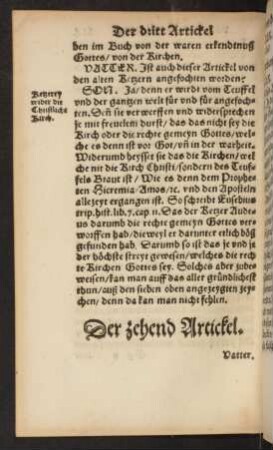 Der dritt Artickel
ben im Buch von der waren erkendtnuß
Gottes/ von der Kirchen.
VATTER. Ist auch dieser Artickel von
den alten Ketzern angefochten worden?
SON. Ja/ denn er wirdt vom Teuffel
vnd der gantzen welt für vnd für angefoch-
ten. Den sie verwerffen vnd widersprechen
je mit freuelem durst/ das das nicht sey die
Kirch oder die rechte gemeyn Gottes/ wel-
che es denn ist vor Got/ vñ in der warheit.
Widerumb heysset sie das die Kirchen/ wel
che nit die Kirch Christi/ sondern des Teuf-
fels Braut ist/ Wie es denn dem Prophe-
ten Hieremia/ Amos/ ec. vnd den Aposteln
allezeyt ergangen ist. So schreibt Eusebius
trip. hist. lib. 7. cap. 11. Das der Ketzer
us darumb die rechte gemeyn Gottes ver-
worffen hab/ dieweyl er darunter etlich böß
gefunden hab. Darumb so ist das je vnd je
der höchste streyt gewesen/ welches die rech
te Kirchen Gottes sey. Solches aber zube
weisen/ kan man auff das aller gründlichest
thun/ auß den sieben oben angezeygten zey-
chen/ denn da kan man nicht fehlen.
Ketzerey
wider die
Christliche
Kirch.
Der zehend Artickel.
Vatter.